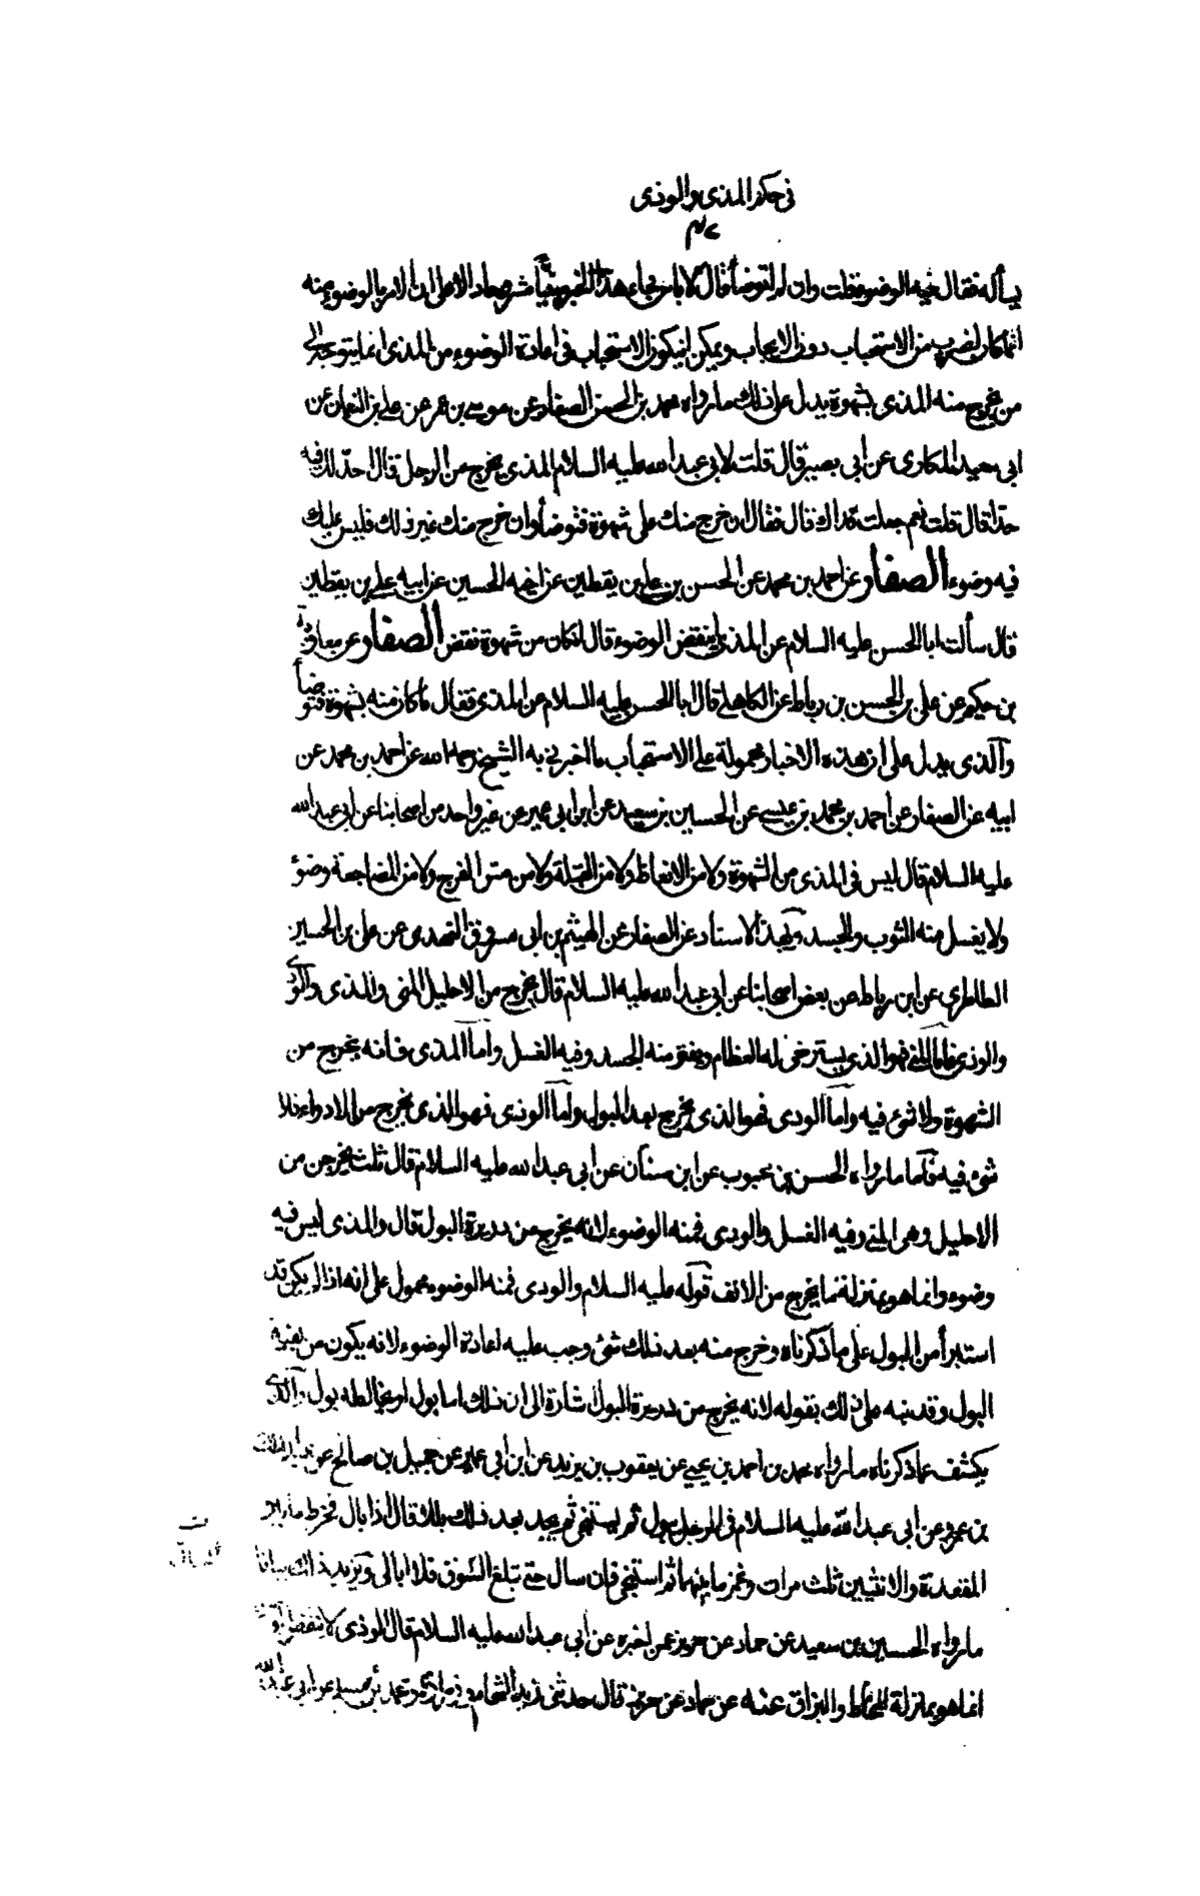 في حكم المذي والوذي
يسأله فقال فيه الوضوء فقلت وان لم اتوضأ قال لا باس فجاء هذا الخبر مبيناً مشروحا دالا على ان الامر بالوضوء منه
انما كان لضرب من الاستحباب دون الايجاب ويمكن ان يكون الاستحباب في اعادة الوضوء من المذي انما يتوجه الى
من يخرج منه المذي بشهوة يدل على ذلك ما رواه محمد بن الحسن الصفار عن موسى بن عمر عن علي بن النعمان عن
ابي سعيد المكاري عن ابي بصير قال قلت لابي عبد الله عليه السلام المذي يخرج من الرجل قال احدّ لك فيه
حدا قال قلت نعم جعلت فداك قال فقال ان خرج منك على شهوة فتوضأ وان خرج منك غير ذلك فليس عليك
فيه وضوء الصفار عن احمد بن محمد عن الحسن بن علي بن يقطين عن اخيه الحسين عن ابيه علي بن يقطين
قال سألت ابا الحسن عليه السلام عن المذي اينقض الوضوء قال ان كان من شهوة نقض الصفار عن معاوية
بن حكيم عن علي بن الحسن بن رباط عن الكاهلي قال ابا الحسن عليه السلام عن المذي فقال ما كان منه بشهوة فتوضأ
والذي يدل على ان هذه الاخبار محمولة على الاستحباب ما اخبرني به الشيخ رحمه الله عن احمد بن محمد عن
ابيه عن الصفار عن احمد بن محمد بن عيسى عن الحسين بن سعيد عن ابن ابي عمير عن غير واحد من اصحابنا عن ابي عبد الله
عليه السلام قال ليس في المذي من الشهوة ولا من الانعاظ ولا من القبلة ولا من مس الفرج ولا من المضاجعة وضوء
ولا يغسل منه الثوب والجسد وبهذا الاسناد عن الصفار عن الهيثم بن ابي مسروق النهدي عن علي بن الحسين
الطاطري عن ابن رباط عن بعض اصحابنا عن ابي عبد الله عليه السلام قال يخرج من الاحليل المني والمذي والودي
والوذي فاما المني فهو الذي يسترخي له العظام ويفتر منه الجسد وفيه الغسل واما المذي فانه يخرج من
الشهوة ولا شئ فيه واما الودي فهو الذي يخرج بعد البول واما الوذي فهو الذي يخرج من الادواء فلا
شئ فيه فاما ما رواه الحسن بن محبوب عن ابن سنان عن ابي عبد الله عليه السلام قال ثلث يخرجن من
الاحليل وهي المني وفيه الغسل والودي فمنه الوضوء لانه يخرج من دريرة البول قال والمذي ليس فيه
وضوء وانما هو بمنزلة ما يخرج من الانف قوله عليه السلام والودي فمنه الوضوء محمول على انه اذا لم يكن قد
استبرأ من البول على ما ذكرناه وخرج منه بعد ذلك شئ وجب عليه اعادة الوضوء لانه يكون من بقية
البول وقد نبه على ذلك بقوله لانه يخرج من دريرة البول اشارة الى ان ذلك اما بول او يخالطه بول والذي
يكشف عما ذكرناه ما رواه محمد بن احمد بن يحيى عن يعقوب بن يزيد عن ابن ابي عمير عن جميل بن صالح عن عبد الملك
بن عمرو عن ابي عبد الله عليه السلام في الرجل يبول ثم يستنجي ثم يجد بعد ذلك بللا قال اذا بال فخرط ما بين
المقعدة والانثيين ثلث مرات وغمز ما بينهما ثم استنجى فان سال حتى تبلغ السوق فلا ابالي ويزيد ذلك بيانا
ما رواه الحسين بن سعيد عن حماد عن حريز عمن اخبره عن ابي عبد الله عليه السلام قال الوذي لا ينقض الوضوء
انما هو بمنزلة المخاط والبزاق عنه عن حماد عن حريز قال حدثني زيد الشحام وزرارة ومحمد بن مسلم عن ابي عبد الله